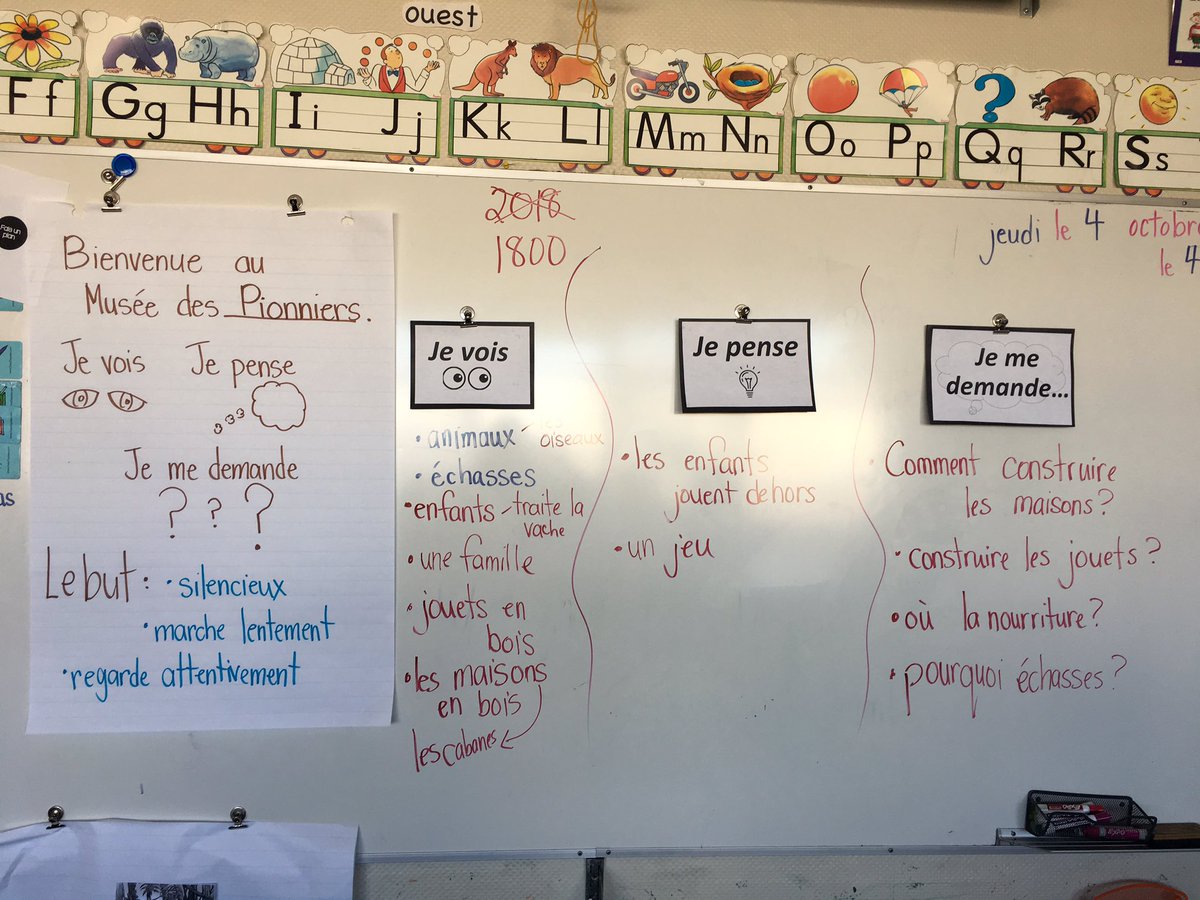 ouest
Ff Gg Hh Ii Jj Kk Ll Mm Nn Oo Pp Qq Rr Ss
?
Fais un
plan
Bienvenue au
Musée des Pionniers.
Je vois Je pense
Je me demande
? ? ?
Le but : • silencieux
• marche lentement
• regarde attentivement
2018
1800
jeudi le 4 octobre
le 4
Je vois
• animaux - les
oiseaux
• échasses
• enfants - traite la
vache
• une famille
• jouets en
bois
• les maisons
en bois
les cabanes
Je pense
• les enfants
jouent dehors
• un jeu
Je me
demande...
• Comment construire
les maisons?
• construire les jouets?
• où la nourriture?
• pourquoi échasses?